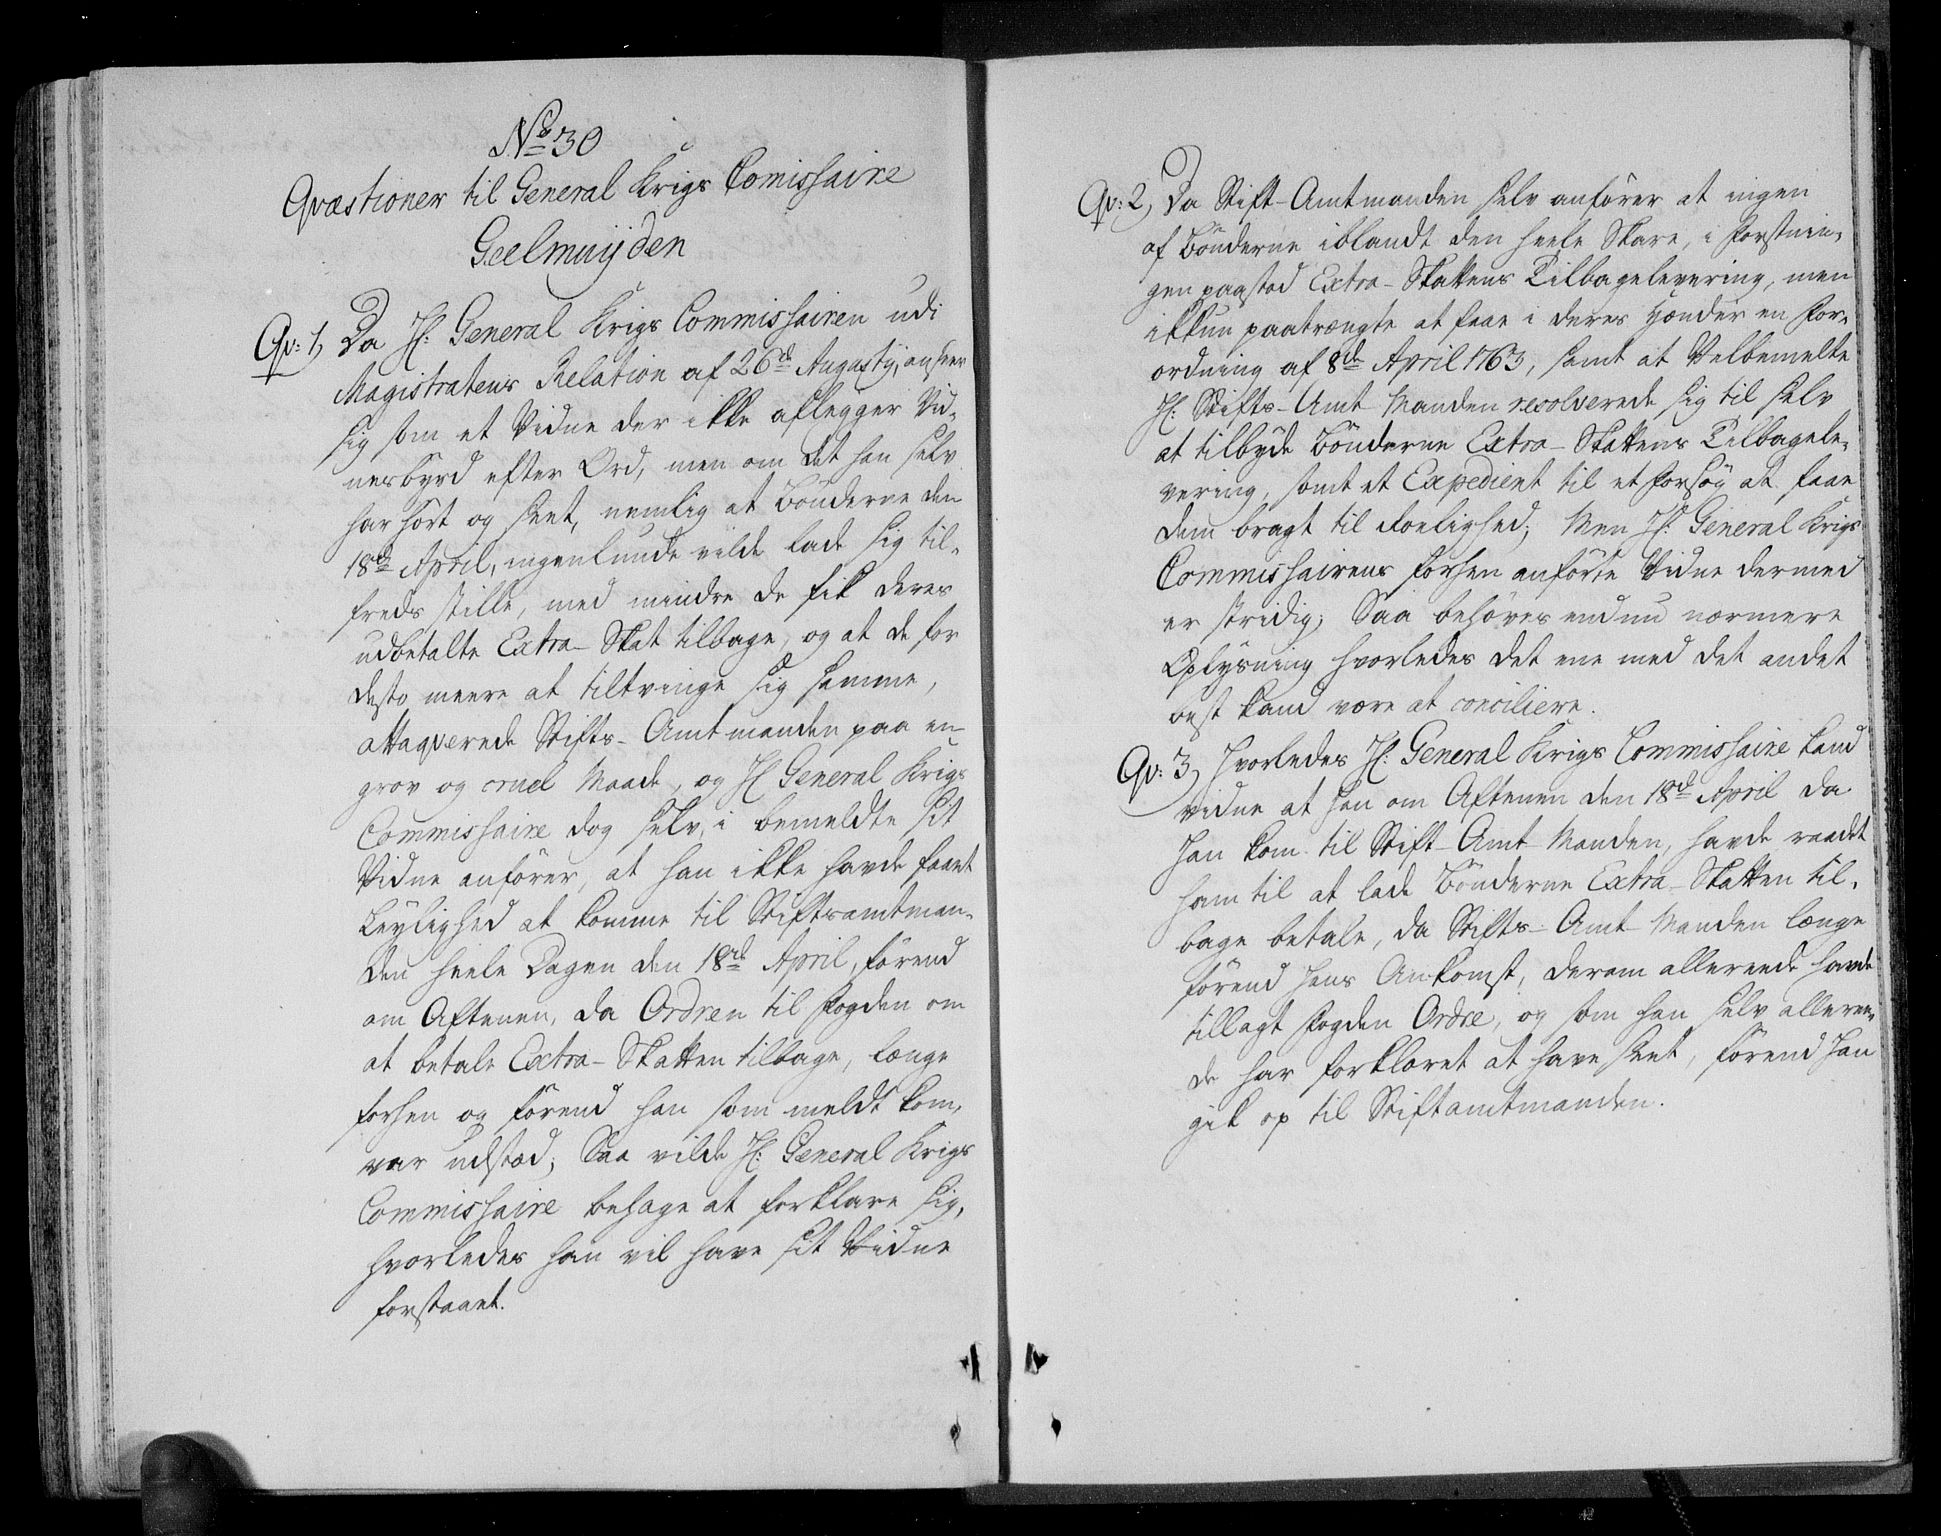 No 30
Qvæstioner til General Krigs Comissaire
Geelmuijden
Qv: 1, Da H: General Krigs Commissairen udi
Magistratens Relation af 26de Augustij, anseer
sig som et Vidne der ikke aflegger Vid-
nesbyrd efter Ord, men om det han selv
har hört og seet, nemlig at Bönderne den
18de April, ingenlunde vilde lade sig til-
freds stille, med mindre de fik deres
udbetalte Extra-Skat tilbage, og at de for
desto meere at tiltvinge sig samme,
attaqverede Stifts-Amtmanden paa en
grov og cruel Maade, og H: General Krigs
Commissaire dog selv, i bemeldte sit
Vidne anförer, at han ikke havde faaet
Leylighed at komme til Stiftsamtman-
den heele Dagen den 18de April, förend
om Aftenen, da Ordren til Fogden om
at betale Extra-Skatten tilbage, længe
forhen og förend han som meldt kom,
var udstæd; Saa vilde H: General Krigs
Commissaire behage at forklare sig,
hvorledes han vil have sit Vidne
forstaaet.
Qv: 2, Da Stift-Amtmanden selv anförer at ingen
af Bönderne iblandt den heele Skare, i Forstnin-
gen paastod Extra-Skattens Tilbagelevering, men
ikkun paatrængte at faae i deres Hænder en For-
ordning af 8de April 1763, samt at Velbemelte
H: Stifts-Amt Manden resolverede sig til selv
at tilbyde Bönderne Extra-Skattens Tilbagele-
vering, som et Expedient til et Forsög at faae
dem bragt til Roelighed; Men H: General Krigs
Commissairens forhen anförte Vidne dermed
er stridig; Saa behöves endnu nærmere
Oplysning hvorledes det ene med det andet
best kand være at conciliere.
Qv: 3, Hvorledes H: General Krigs Commissaire kand
vidne at han om Aftenen den 18de April da
han kom til Stift-Amt-Manden, havde raadet
ham til at lade Bönderne Extra-Skatten til-
bage betale, da Stifts-Amt-Manden længe
förend hans Ankomst, derom allereede havde
tillagt Fogden Ordre, og som han selv alleree-
de har forklaret at have seet, förend han
gik op til Stiftamtmanden.